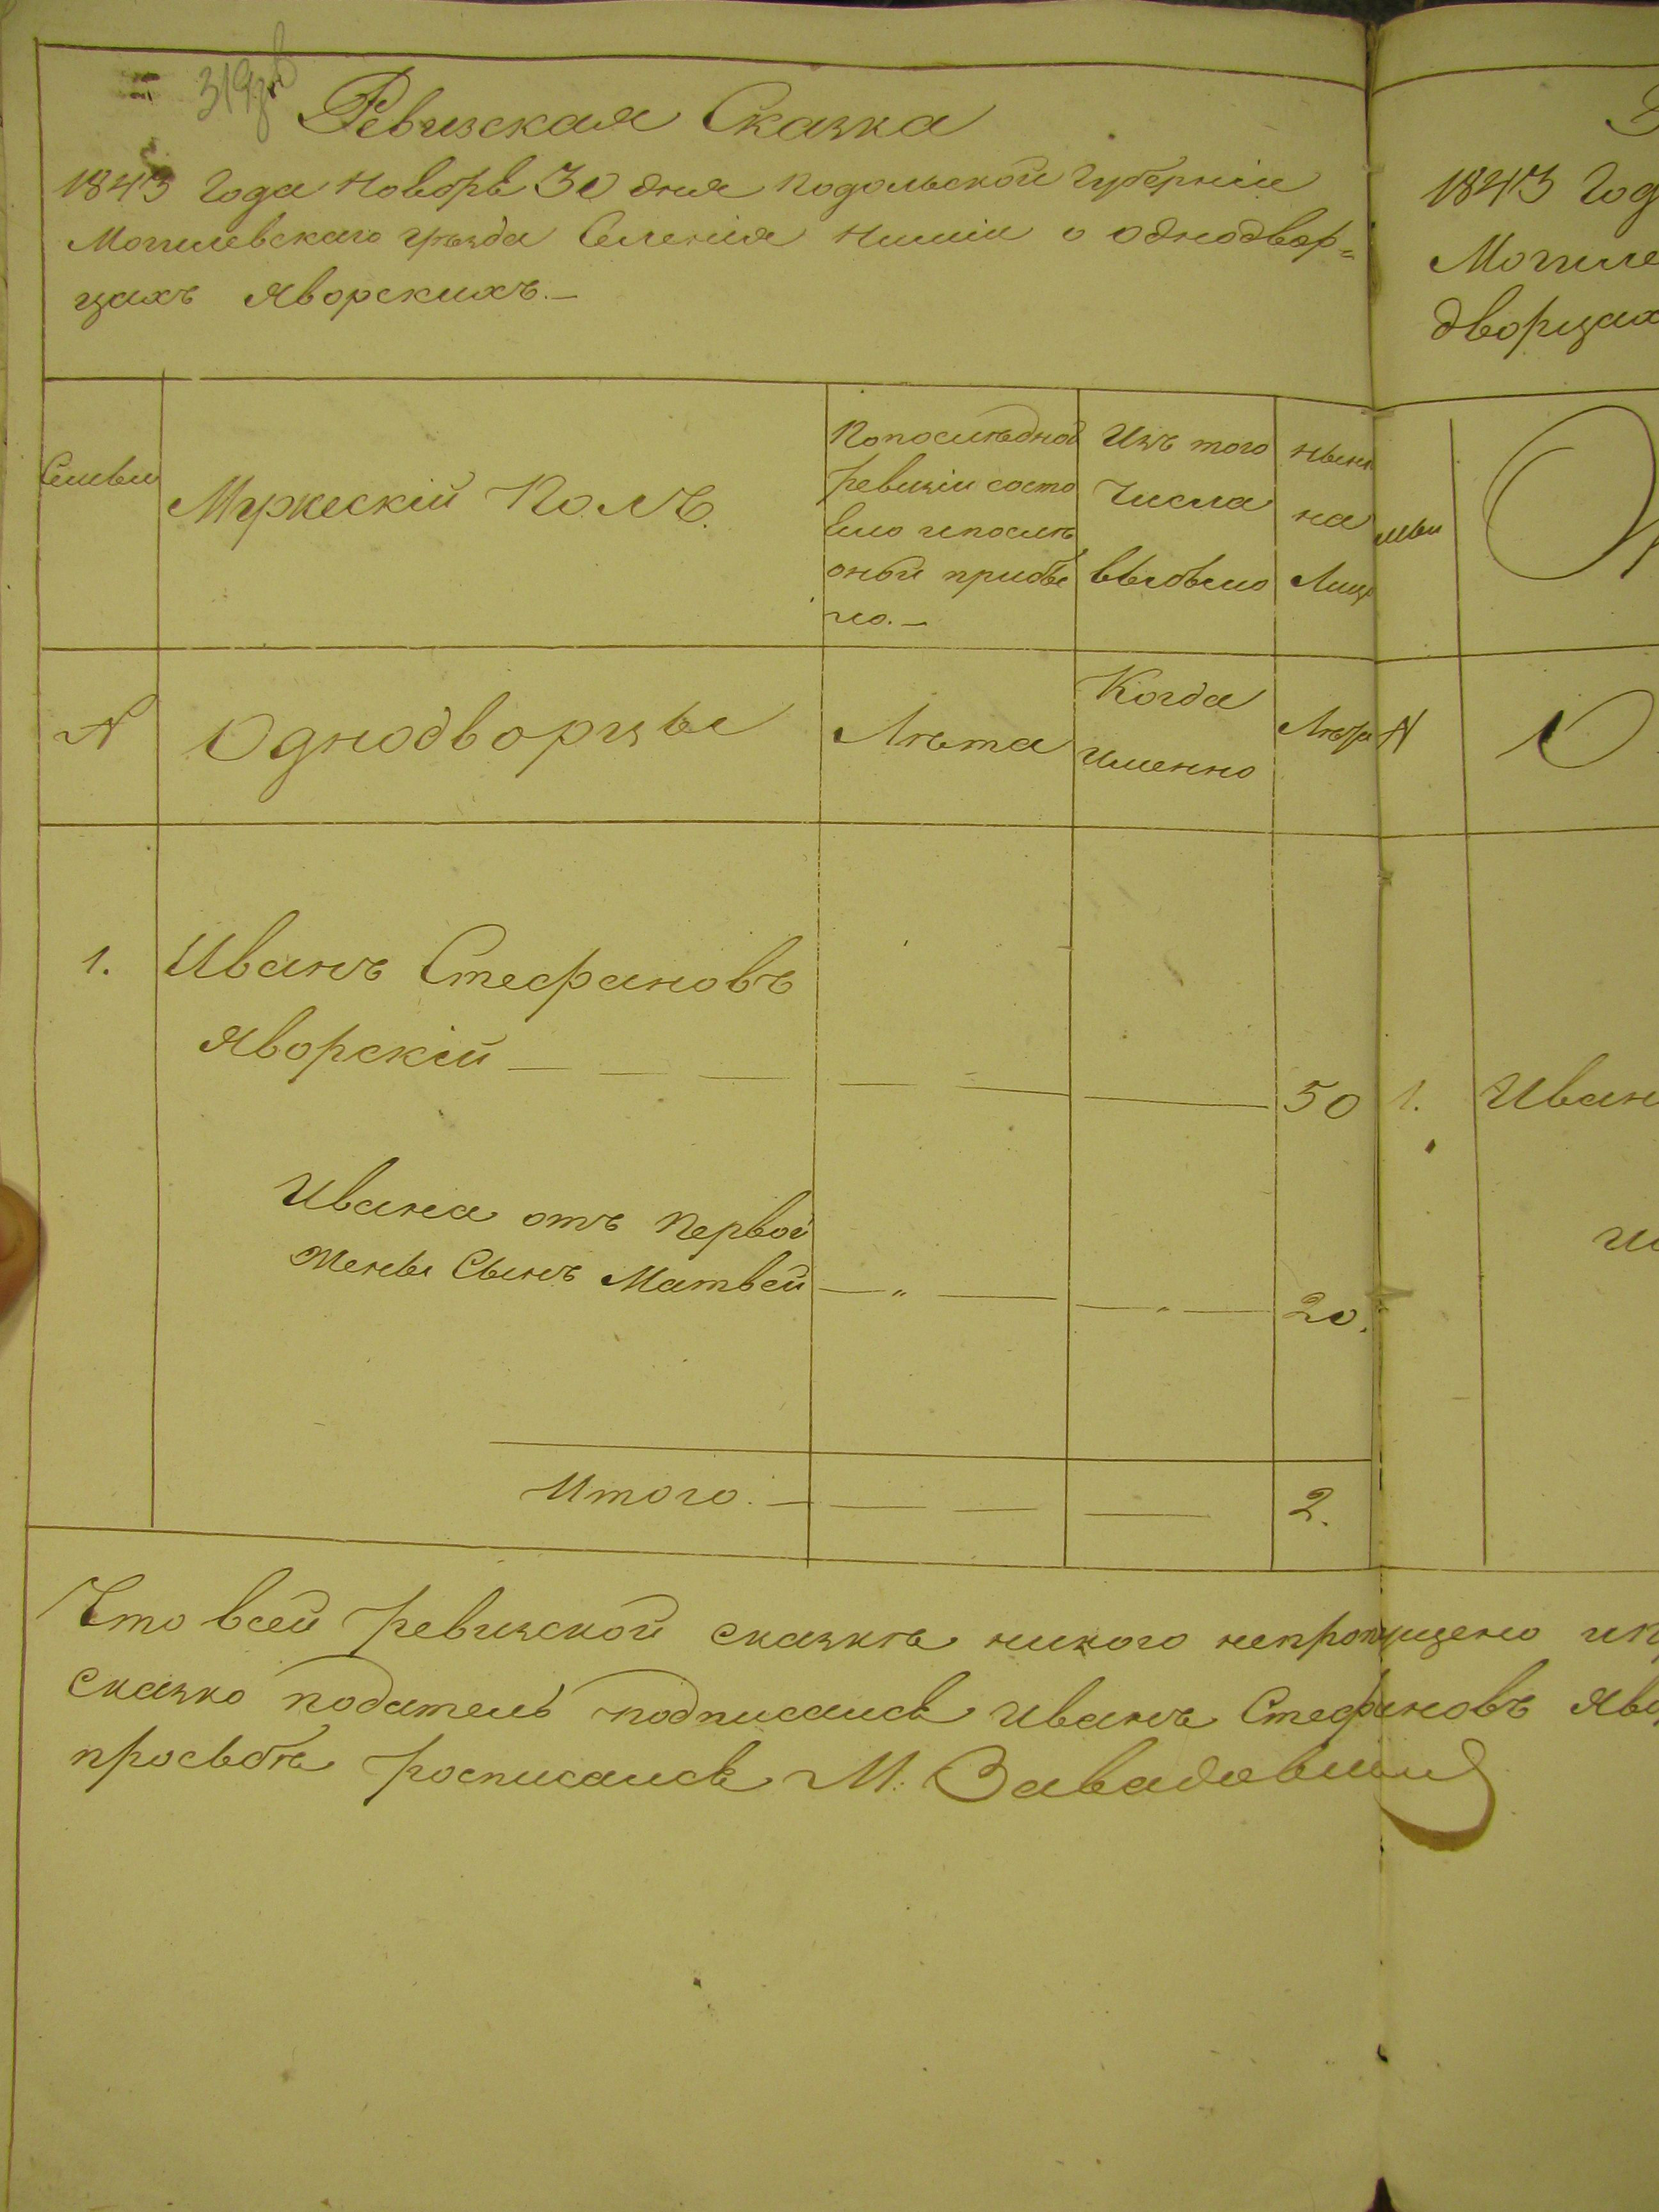 319
Ревизская Сказка
1843 Года Ноябрь 30 дня Подольской Губерніи
Могилевскаго уѣзда Селенія Нишіи о однодвор=
цахъ Яворскихъ.—
Семьи
Мужескій Полъ.
По последной
ревизіи состо
яло и после
оной прибы
ло.—
Изъ того
Числа
выбыло
ныне
на
Лице
N
Однодворцы
Лѣта
Когда
именно
Лѣта
1. Иванъ Стефановъ
Яворскій — — — — — — — 50
Ивана отъ Первой
Жены Сынъ Матвей — „ — — „ — 20.
Итого. — — — — 2.
Что всей ревизской сказкѣ никого непропущено
сказко податель подписался Иванъ Стефановъ
просьбѣ росписался М: Завадовскій
1843 Год
Могиле
дворцах
N
1. Иван